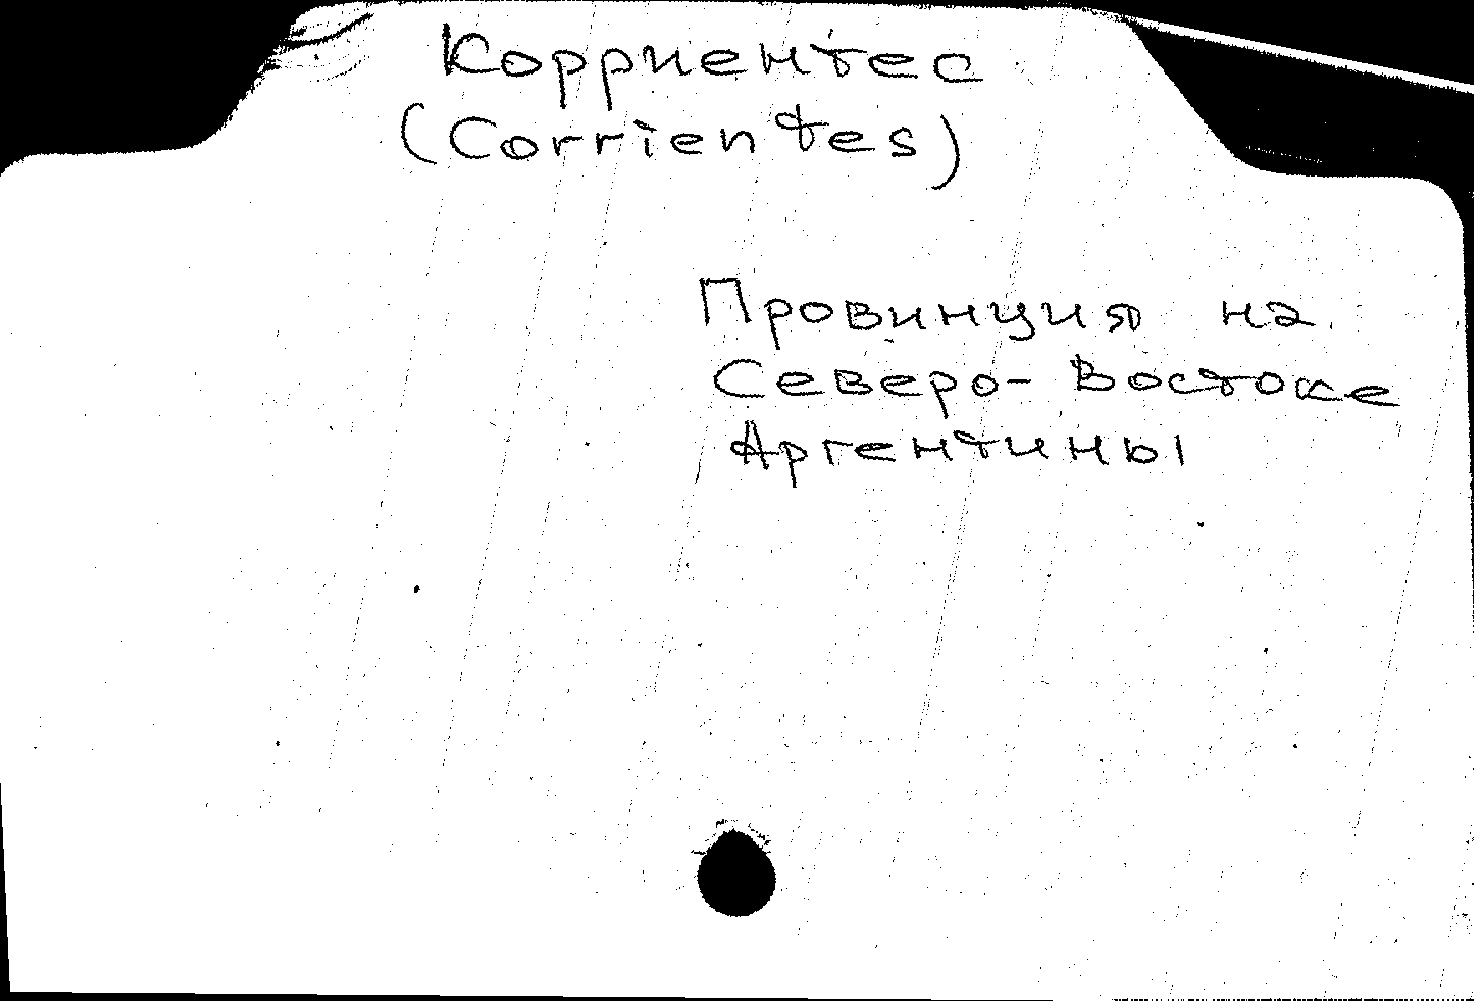 Корриентес
(Corrientes)
Провинция на
Северо-Востоке
Аргентины